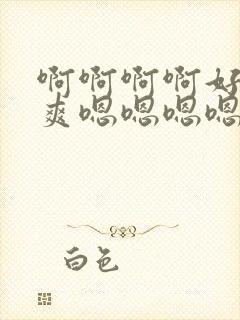 啊啊啊啊好
爽嗯嗯嗯嗯
白色